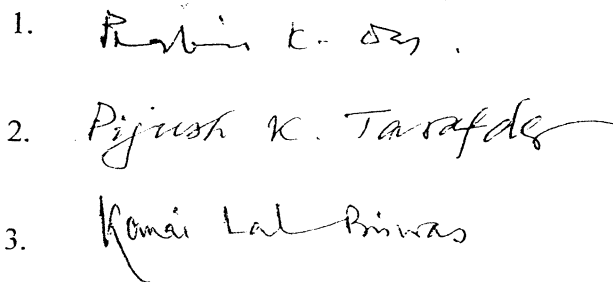 1. K. Das.
2. Pijush K. Tarafder
3. Kanai Lal Biswas